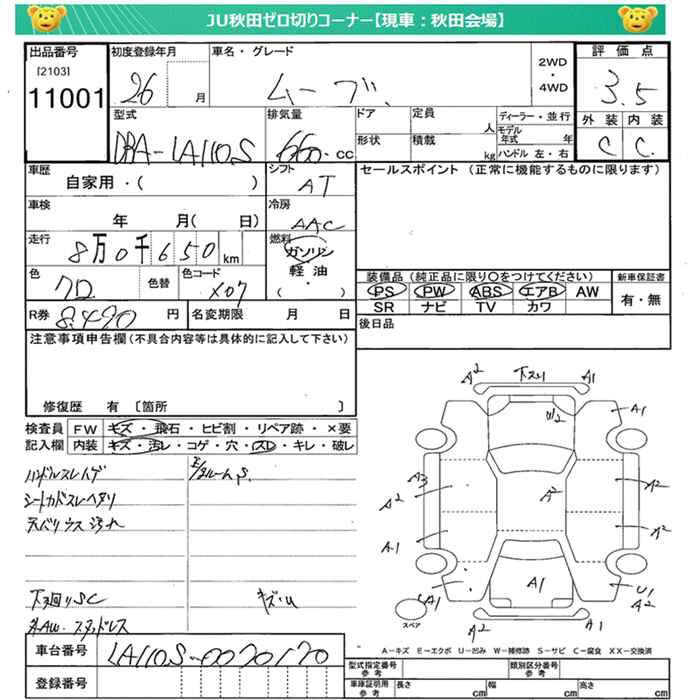 JU秋田ゼロ切りコーナー【現車：秋田会場】
出品番号
[2103]
11001
初度登録年月
26
月
車名・グレード
ムーブ
2WD
・
4WD
評価点
3.5
外装 内装
C C
型式
DBA-LA110S
排気量
660 cc
ドア
形状
定員
人
積載
kg
ディーラー・並行
モデル年式 年
ハンドル 左・右
車歴
自家用・( )
シフト
AT
セールスポイント (正常に機能するものに限ります)
車検
年 月( 日)
冷房
AAC
走行
8万0千650km
燃料
ガソリン
軽油
・
( )
色
クロ
色替
色コード
X07
装備品 (純正品に限り○をつけてください)
PS PW ABS エアB AW
SR ナビ TV カワ
新車保証書
有・無
R券
8,490円
名変期限 月 日
後日品
注意事項申告欄(不具合内容等は具体的に記入して下さい)
修復歴 有 〔箇所 〕
検査員
記入欄
FW キズ・飛石・ヒビ割・リペア跡・×要
内装 キズ・汚レ・コゲ・穴・スレ・キレ・破レ
ハンドルスレハゲ
シートカドスレヘタリ
天バリウス汚れ
E/gルームS
下廻りSC
キズ・U
社外AW・スタッドレス
A2 下スリ A1
W2 A1
A3
A2 A2 A2
A1 A2
A1 A1 U1
A2
A2 A2
スペア
A－キズ E－エクボ U－凹み W－補修跡 S－サビ C－腐食 XX－交換済
車台番号
LA110S-0070170
登録番号
型式指定番号
参考
類別区分番号
参考
車庫証明用
参考
長さ cm
幅 cm
高さ cm